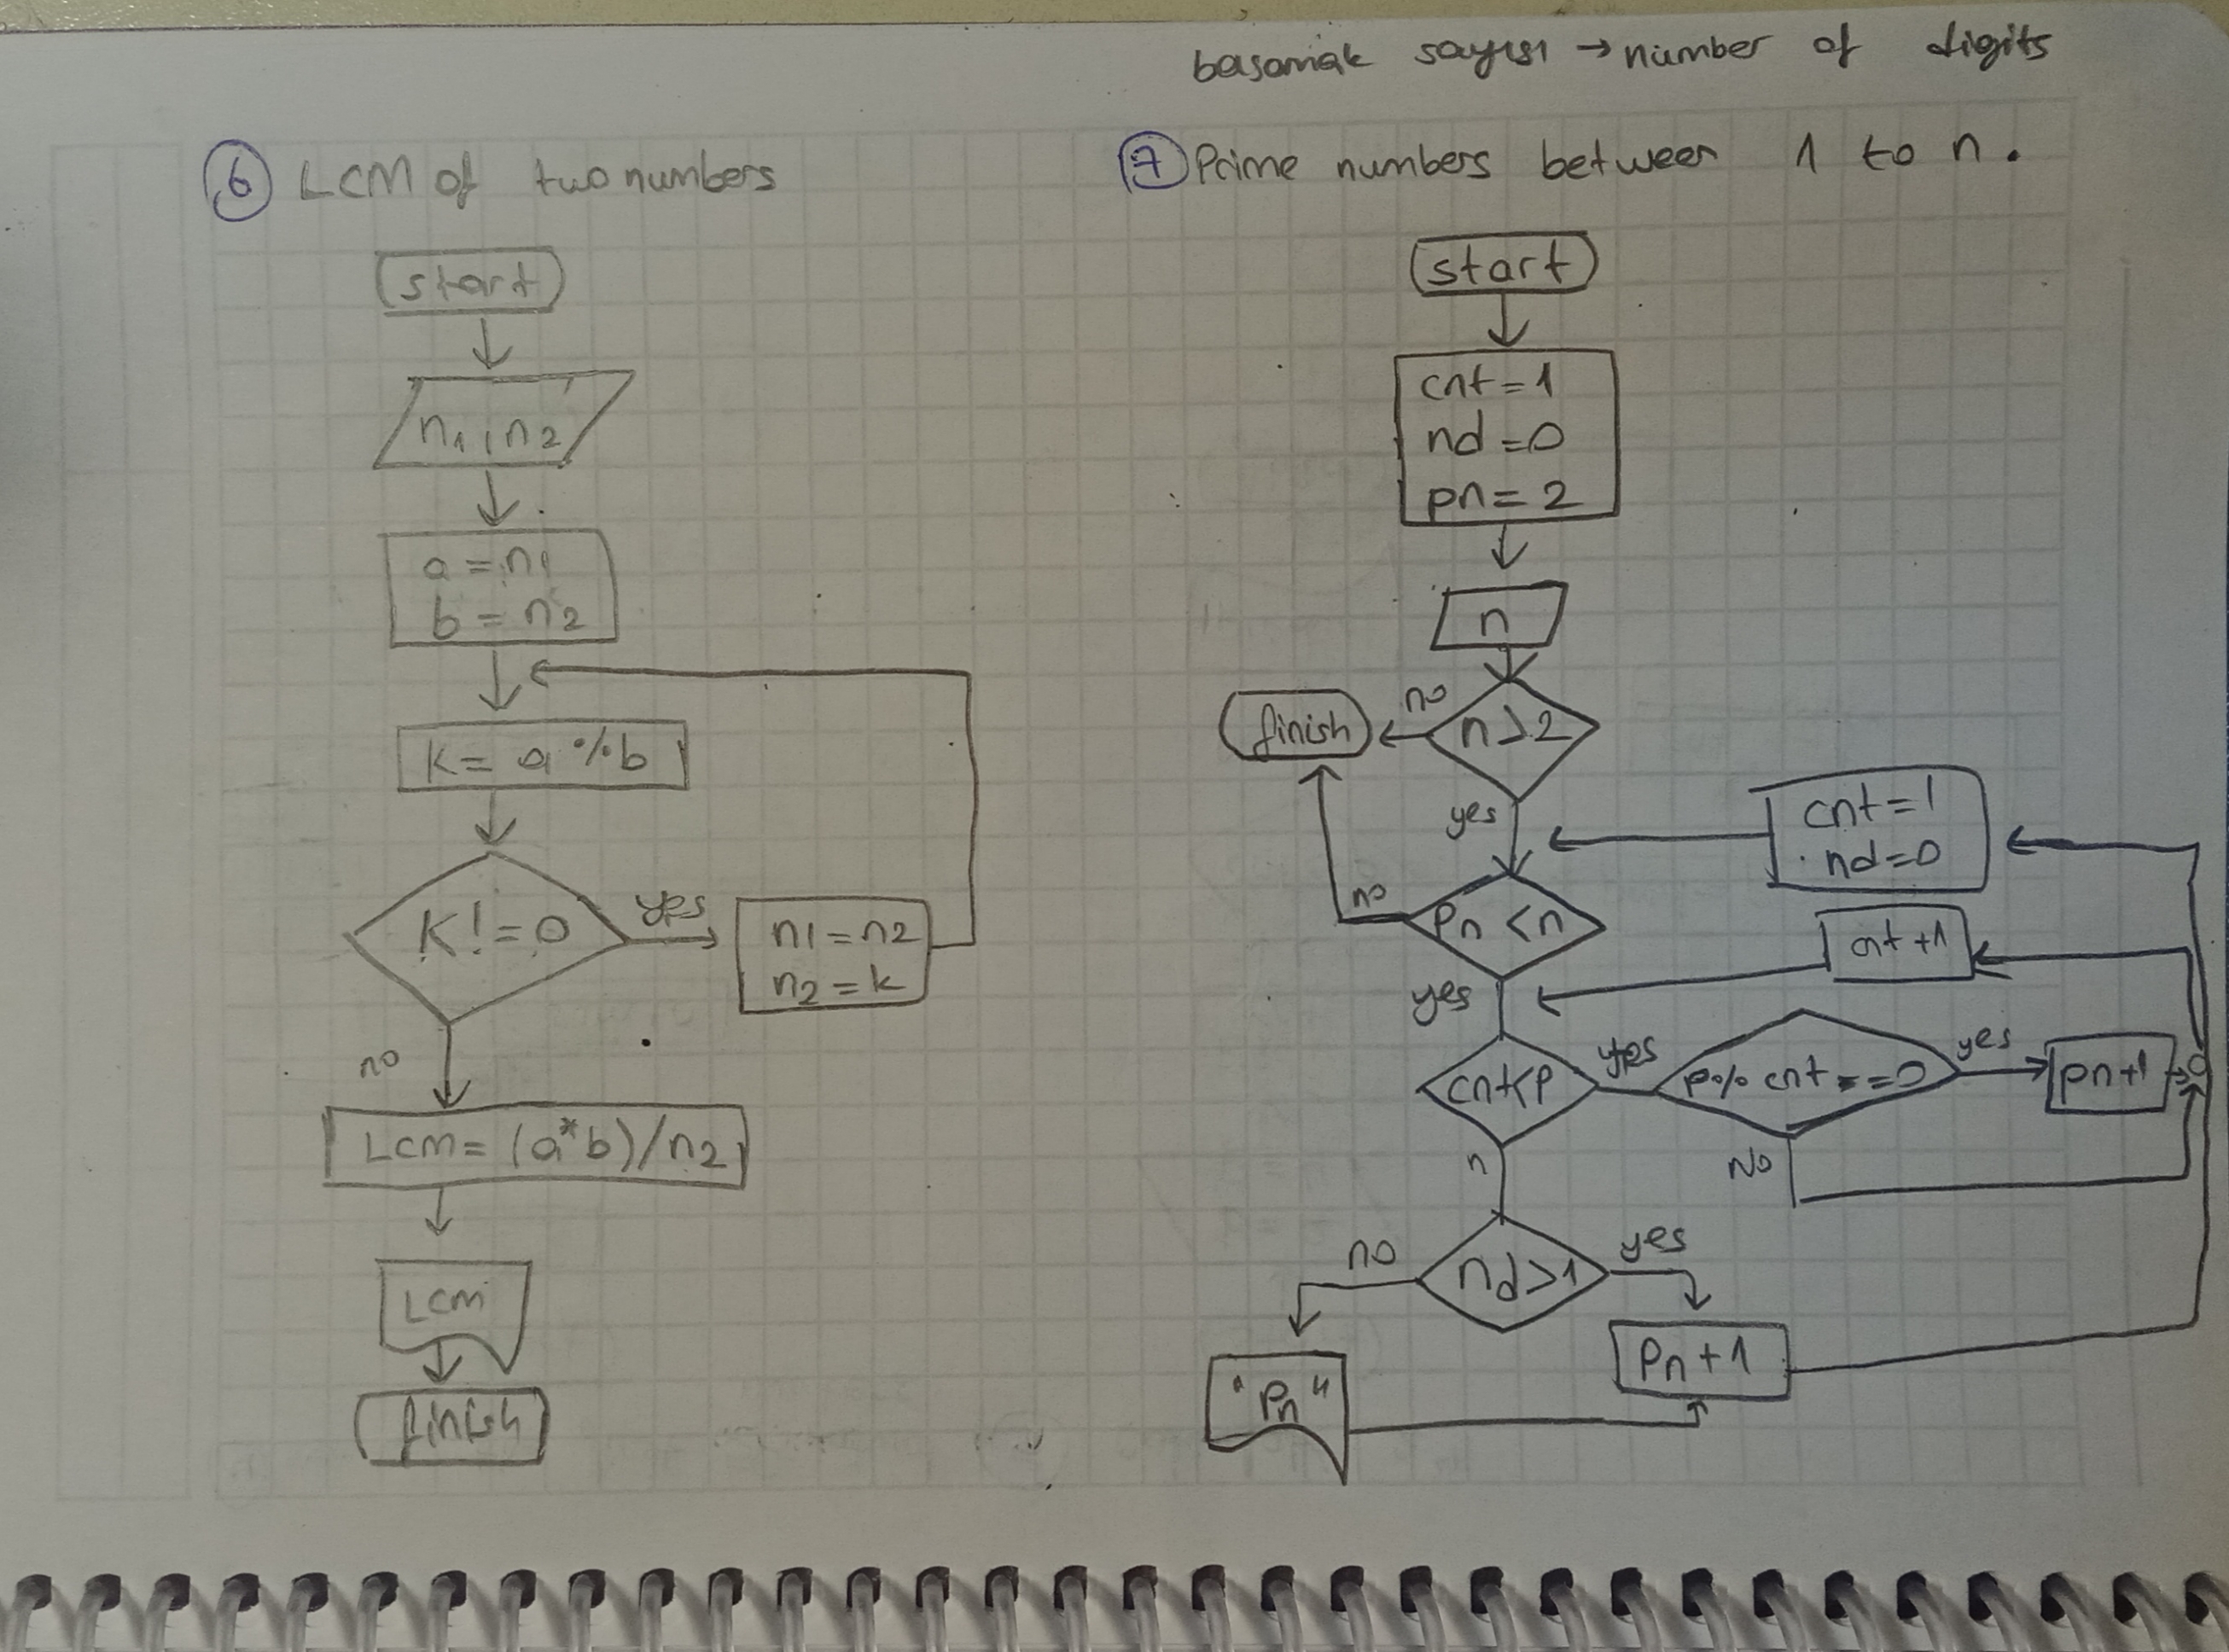 basamak sayısı → number of digits
6 LCM of two numbers
start
n1, n2
a = n1
b = n2
K = a % b
K != 0
yes
n1 = n2
n2 = k
no
Lcm = (a*b)/n2
Lcm
finish
7 Prime numbers between 1 to n.
start
cnt = 1
nd = 0
pn = 2
n
n > 2
no
finish
yes
cnt = 1
nd = 0
Pn < n
no
cnt +1
yes
cnt < P
yes
P % cnt == 0
yes
pn+1
No
n
nd > 1
no
yes
"Pn"
Pn + 1